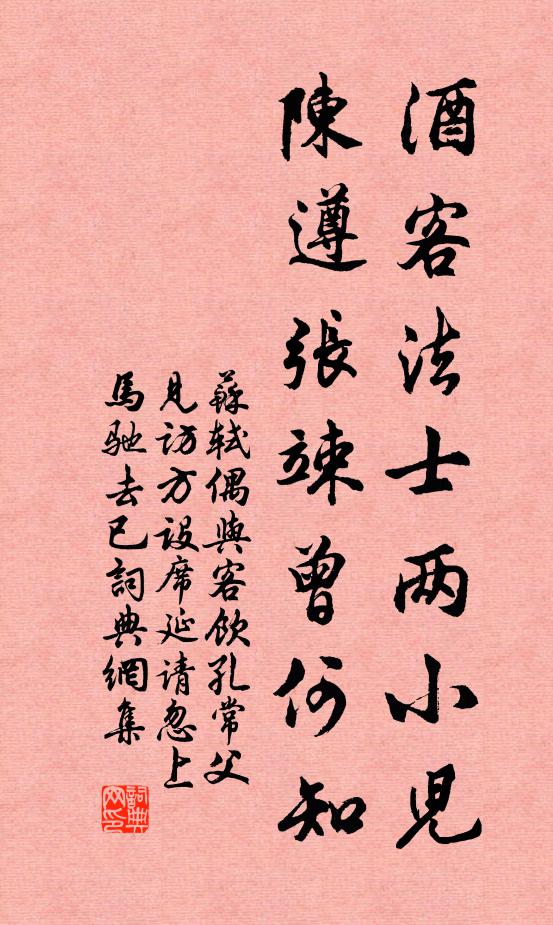 酒客法士两小児
陳遵張竦曾何知
蘇軾偶與客飲孔常父
見訪方設席延请忽上
馬馳去已詞典網集
詞典網印